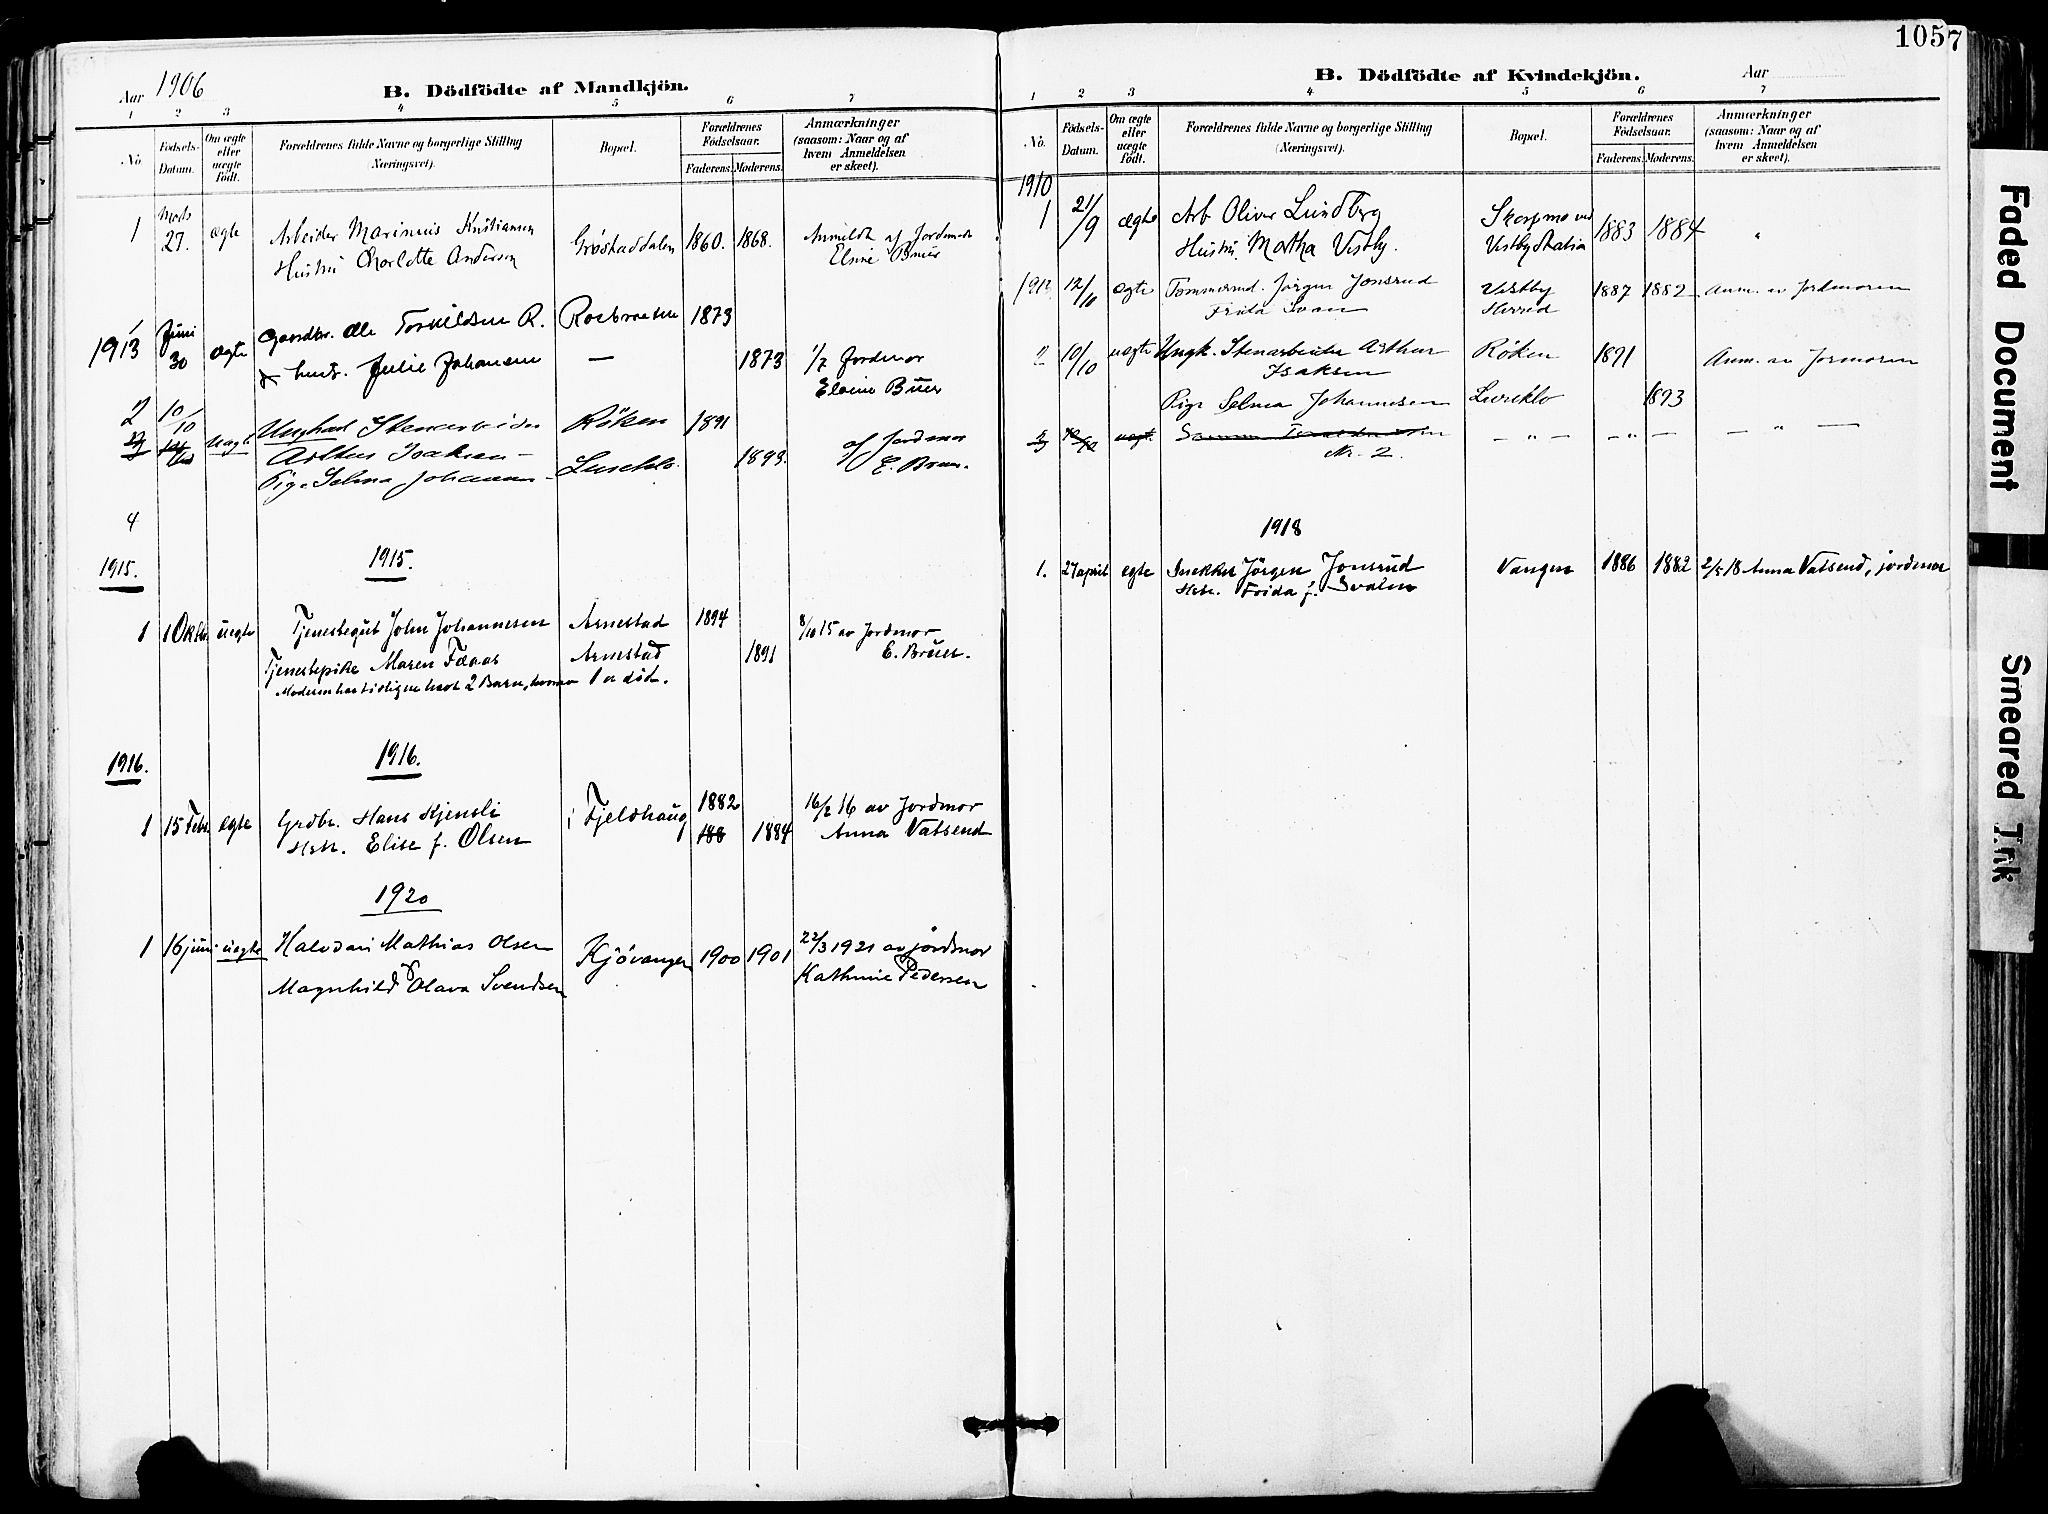 1057
Aar 1906
B. Dödfödte af Mandkjön.
1 2 3 4 5 6 7
No. Födsels-Datum. Om ægte eller uægte födt. Forældrenes fulde Navne og borgerlige Stilling (Næringsvei). Bopæl. Forældrenes Födselsaar. Faderens. Moderens. Anmærkninger (saasom: Naar og af hvem Anmeldelsen er skeet).
1 27. ægte Arbeider Marinius Kristiansen Grøstaddalen 1860. 1868. Anmeldt af Jordmoder
Hustru Charlotte Anderson
1
1913 Juni 30 ægte Gaardbr. Ole R. 1873
hustr. Julie Johansen — 1873 1/7 Jordmor
Elvine Buer
2 10/10 uægte Ungkarl Stenarbeider Röken 1891
Arthur Isaksen — 1893. af Jordmor
Pige Selma Johannes
4
1915. 1915.
1 1 Oktbr. uegte Tjenestegut John Johannesen Arnestad 1894 8/10 15 av Jordmor
Tjenestepike Maren Arnestad 1891 E. Brüer.
Moderen har tidligere havt 2 Barn, hvorav 1 er død.
1916. 1916.
1 15 Febr. egte Grdbr. Hans Kjensli i Fjeldhaug 1882 16/2 16 av Jordmor
Hstr. Elise f. Olsen 188 1884 Anna Vatsend
1920
1 16 juni uegte Halvdan Mathias Olsen Kjövangen 1900 1901 22/3 1921 av jordmor
Magnhild Olava Svendsen Kathrine Pedersen
B. Dödfödte af Kvindekjön. Aar
1 2 3 4 5 6 7
No. Födsels-Datum. Om ægte eller uægte födt. Forældrenes fulde Navne og borgerlige Stilling (Næringsvei). Bopæl. Forældrenes Födselsaar. Faderens. Moderens. Anmærkninger (saasom: Naar og af hvem Anmeldelsen er skeet).
1910
1 21/9 ægte Arb Oliver Lundberg ved 1883 1884 "
Hustru Martha Vestby. Vestby Station
1913 12/10 ægte Tømmermd. Jørgen Jonsrud Vestby 1887 1882 Anm. av Jordmoren
Herred
2 10/10 uægte Ungk. Stenarbeider Arthur Røken 1891 Anm. av Jormoren
Isaksen
Pige Selma Johannesen 1893
3 10/10 uægt. — " — — " — — " —
Nr. 2.
1918
1. 27 april egte Snekker Jörgen Jonsrud Vangen 1886 1882 2/5 18 Anna Vatsend, jordmor
Hstr. Frida f. Svalen
Faded Document
Smeared Ink